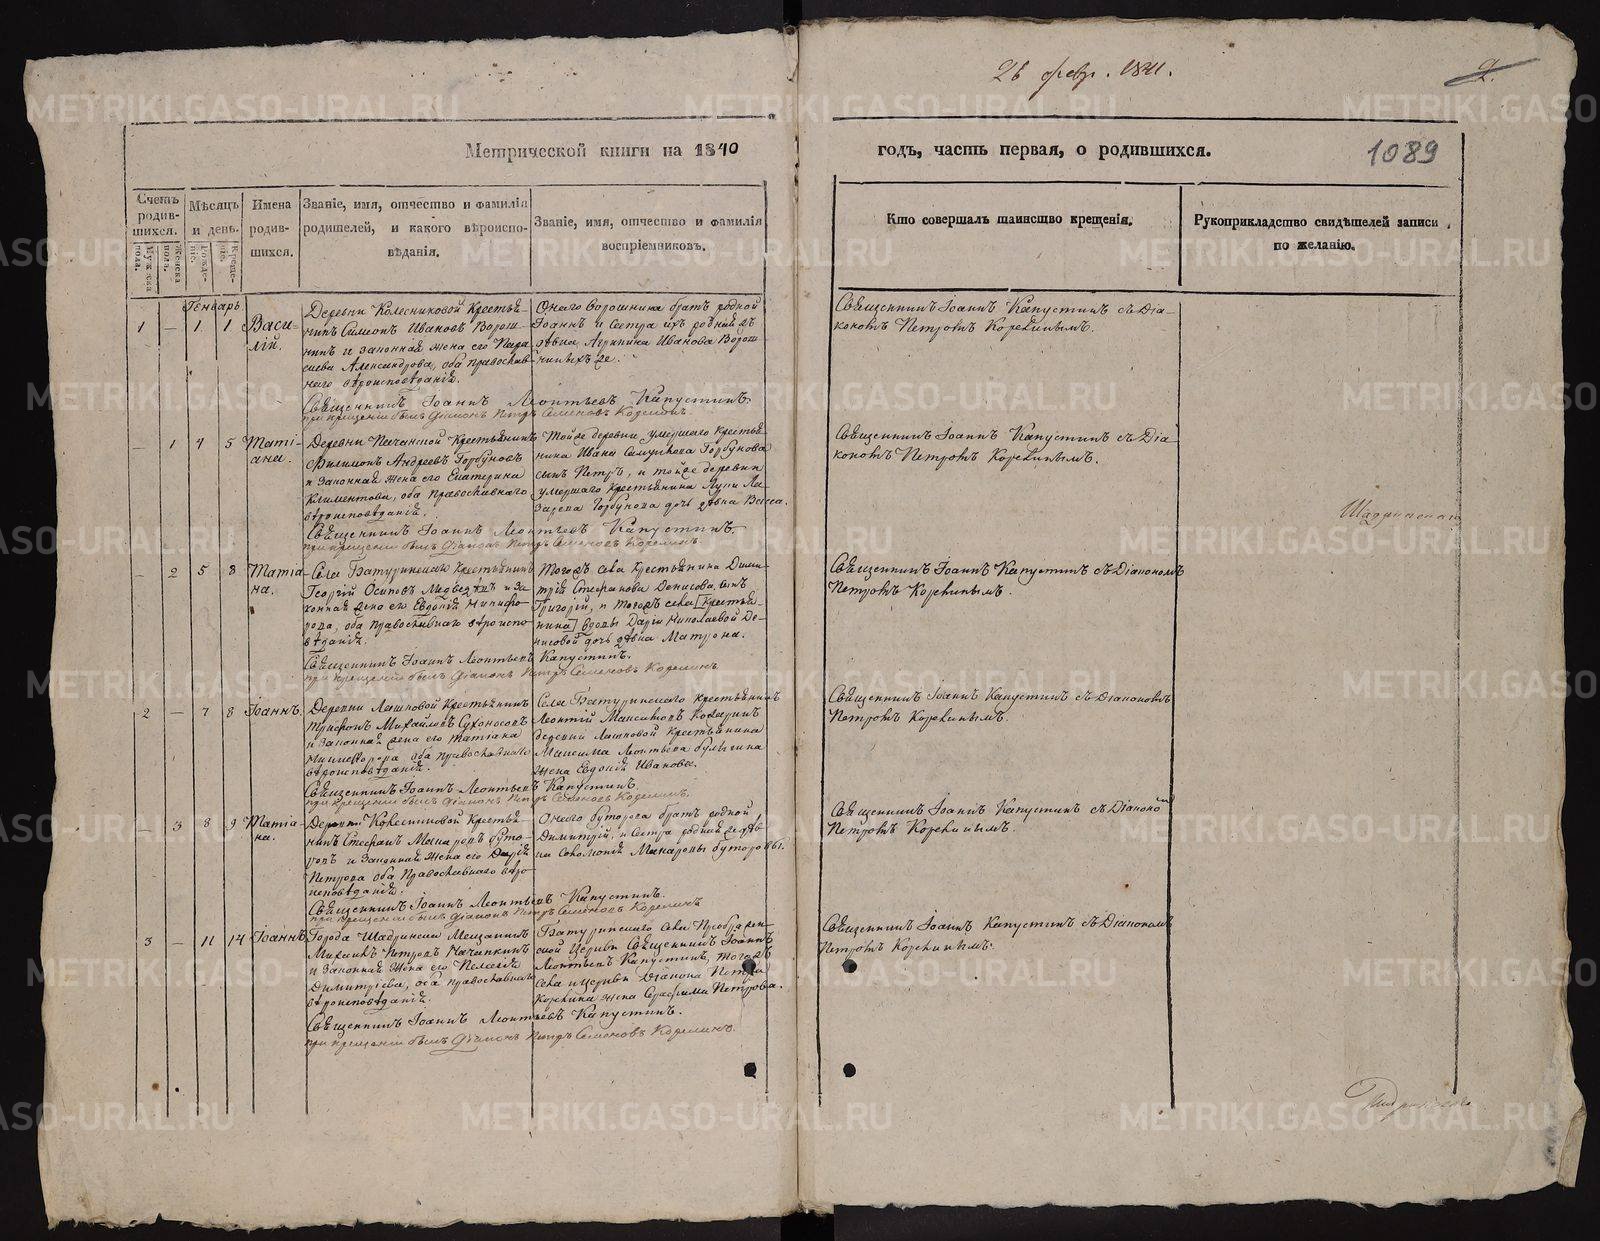 26 февр. 1841.
2.
Метрической книги на 1840
годъ, часть первая, о родившихся.
1089
Счетъ родив-
шихся.
Мужеска пола.
Женска пола.
Мѣсяцъ
и день.
Рожде-
нія.
Креще-
нія.
Имена
родив-
шихся.
Званіе, имя, отчество и фамилія
родителей, и какого вѣроиспо-
вѣданія.
Званіе, имя, отчество и фамилія
воспріемниковъ.
Кто совершалъ таинство крещенія.
Рукоприкладство свидѣтелей записи
по желанію.
Генварь
1 — 1 1 Васи-
лій.
Деревни Колесниковой Крестья-
нинъ Симеонъ Ивановъ Ворош-
нинъ и законная жена его
Александрова, оба православ-
наго вѣроисповѣданія.
Онаго Ворошнина братъ родной
Іоаннъ и сестра ихъ родная
дѣвка Агрипина Иванова Ворош-
нины
Священникъ Іоаннъ Капустинъ съ Діа-
кономъ Петромъ Корелинымъ.
Священникъ Іоаннъ Леонтьевъ Капустинъ.
при крещеніи былъ Діаконъ Петръ Семеновъ Корелинъ.
— 1 4 5 Таті-
ана.
Деревни Крестьянинъ
Филимонъ Андреевъ Горбуновъ
и законная жена его Екатерина
Климентова, оба православнаго
вѣроисповѣданія.
Тойже деревни умершаго крестья-
нина Ивана Горбунова
сынъ Петръ, и тойже деревни
умершаго крестьянина Луки Ла-
зарева Горбунова дочь дѣвка Васса.
Священникъ Іоаннъ Капустинъ съ Діа-
кономъ Петромъ Корелинымъ.
Священникъ Іоаннъ Леонтьевъ Капустинъ.
при крещеніи былъ Діаконъ Петръ Семеновъ Корелинъ.
— 2 5 8 Татіа-
на.
Села Батуринскаго Крестьянинъ
Георгій Осиповъ Медведевъ и за-
конная жена его Евдокія Никифо-
рова, оба православнаго вѣроиспо-
вѣданія.
Тогожъ села крестьянина Дими-
трія Стефанова Денисова сынъ
Григорій, и тогожъ села [крестья-
нина] вдовы Даріи Николаевой Де-
нисовой дочь дѣвка Матрона.
Священникъ Іоаннъ Капустинъ съ Діакономъ
Петромъ Корелинымъ.
Священникъ Іоаннъ Леонтьевъ Капустинъ.
при крещеніи былъ Діаконъ Петръ Семеновъ Корелинъ.
2 — 7 8 Іоаннъ.
Деревни Лашковой Крестьянинъ
Трифонъ Михайловъ Сухоносовъ
и законная жена его Татіана
Никифорова оба православнаго
вѣроисповѣданія.
Села Батуринскаго крестьянинъ
Леонтій Максимовъ
деревни Лашковой крестьянина
Максима Леонтьева Булыгина
жена Евдокія Иванова.
Священникъ Іоаннъ Капустинъ съ Діакономъ
Петромъ Корелинымъ.
Священникъ Іоаннъ Леонтьевъ Капустинъ.
при крещеніи былъ Діаконъ Петръ Семеновъ Корелинъ.
— 3 8 9 Татіа-
на.
Деревни Колесниковой Крестья-
нинъ Стефанъ Макаровъ Буто-
ровъ и законная жена его Дарія
Петрова оба Православнаго вѣро-
исповѣданія.
Онаго Буторова братъ родной
Димитрій, и сестра родная же дѣв-
ка Соломонія Макаровы Буторовы.
Священникъ Іоаннъ Капустинъ съ Діакономъ
Петромъ Корелинымъ.
Священникъ Іоаннъ Леонтьевъ Капустинъ.
при крещеніи былъ Діаконъ Петръ Семеновъ Корелинъ
3 — 11 14 Іоаннъ.
Города Шадринска Мещанинъ
Михаилъ Петровъ
и законная жена его Пелагія
Димитріева, оба православнаго
вѣроисповѣданія.
Батуринскаго села Преображен-
ской Церкви Священникъ Іоаннъ
Леонтьевъ Капустинъ, тогожъ
села и церкви Діакона Петра
Корелина жена Серафима Петрова.
Священникъ Іоаннъ Капустинъ съ Діакономъ
Петромъ Корелинымъ.
Священникъ Іоаннъ Леонтьевъ Капустинъ.
при крещеніи былъ Діаконъ Петръ Семеновъ Корелинъ.
METRIKI.GASO-URAL.RU